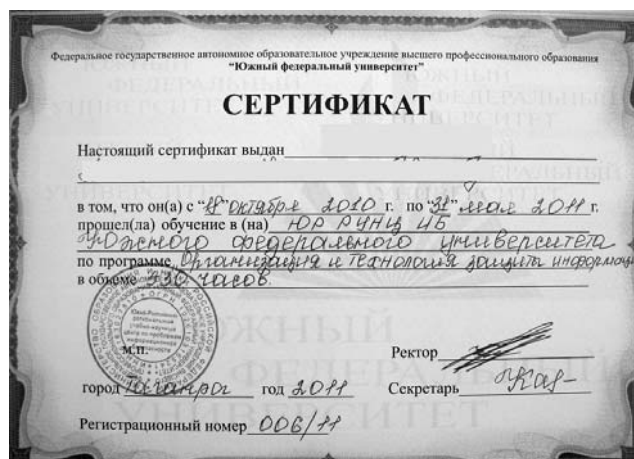 Федеральное государственное автономное образовательное учреждение высшего профессионального образования
“Южный федеральный университет”
СЕРТИФИКАТ
Настоящий сертификат выдан
в том, что он(а) с “18” октября 2010 г. по “31” мая 2011 г.
прошел(ла) обучение в (на) ЮР РУНЦ ИБ
Южного федерального университета
по программе Организация и технология защиты информации
в объеме 530 часов.
М.П.
Ректор
город Таганрог год 2011 Секретарь
Регистрационный номер 006/11
ЮЖНЫЙ
ФЕДЕРАЛЬНЫЙ
УНИВЕРСИТЕТ